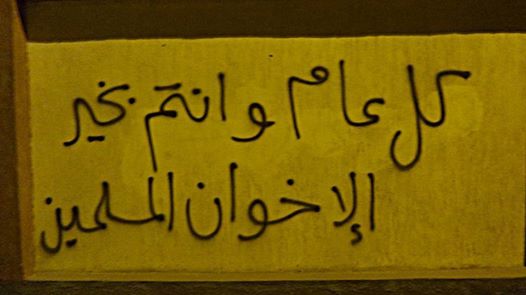 كل عام و انتم بخير
الإخوان المسلمين